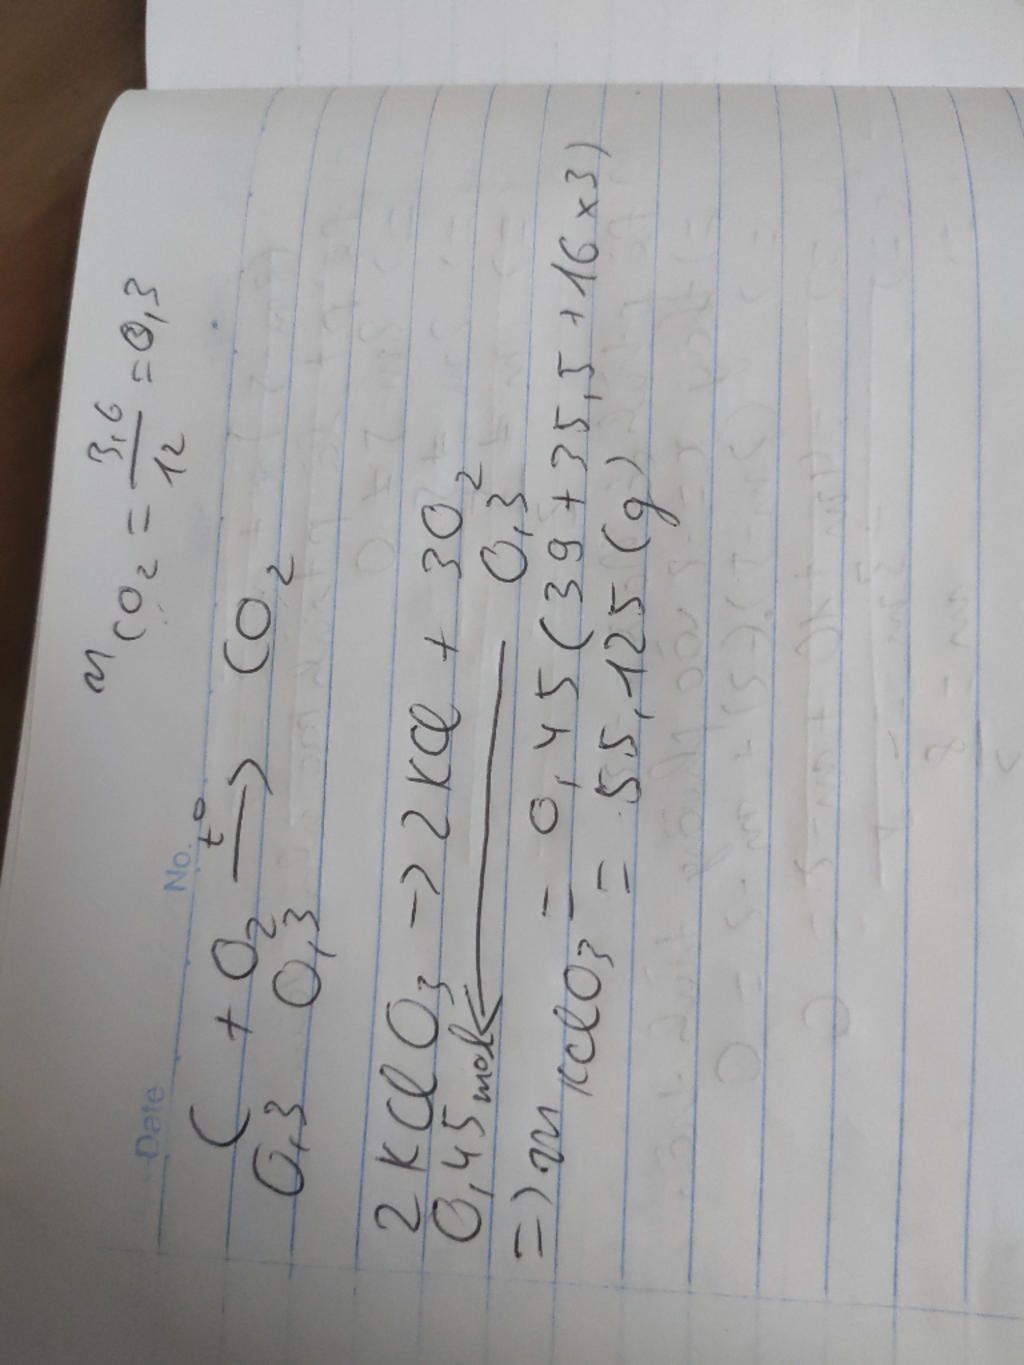 Date No.
n CO2 = 3,6/12 = 0,3
C + O2 t° → CO2
0,3 0,3
2KClO3 → 2KCl + 3O2
0,45 mol ← 0,3
=> m KClO3 = 0,45(39+35,5+16x3)
= 55,125(g)